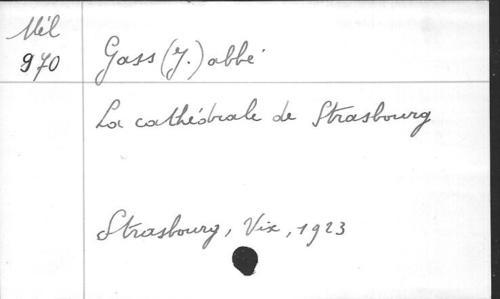 Mél
970
Gass (J.) abbé
La cathédrale de Strasbourg
Strasbourg, Vix, 1923